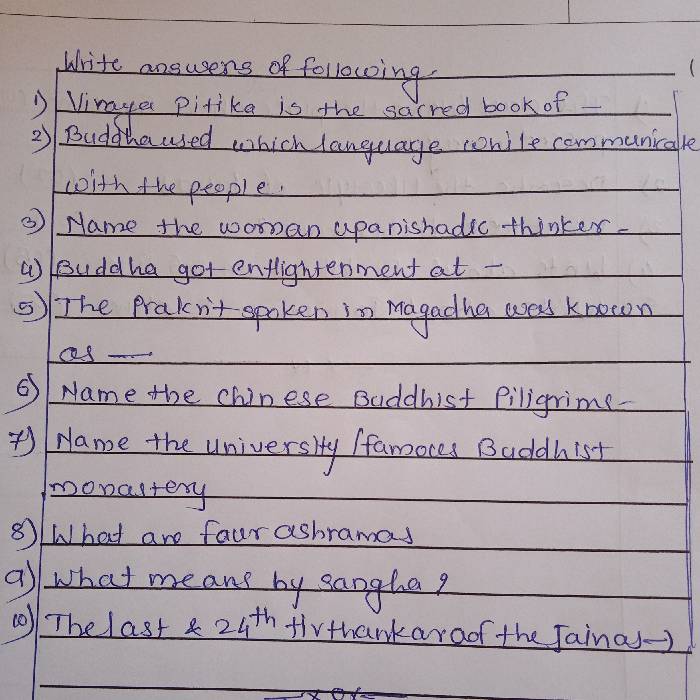 Write answers of following-
1) Vinaya Pitika is the sacred book of -
2) Buddha used which language while communicate
with the people.
3) Name the woman upanishadic thinker-
4) Buddha got entlightenment at -
5) The Prakrit spoken in Magadha was known
as —
6) Name the Chinese Buddhist Piligrime-
7) Name the university/famoces Buddhist
monastery
8) What are four ashramas
9) What means by sangha?
10) The last & 24th tirthankara of the Jainas-)